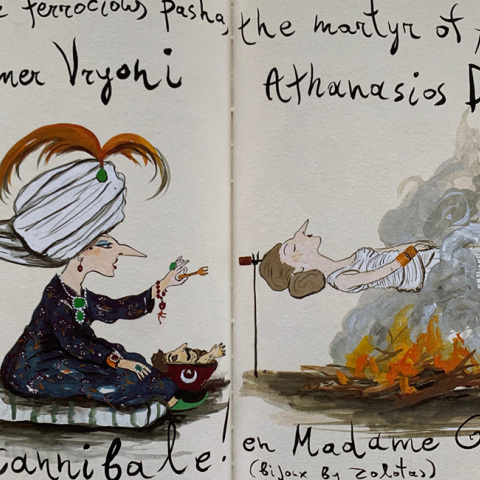 e ferrocious Pasha,
mer Vryoni
cannibale!
the martyr of
Athanasios D
en Madame
(bijoux by Zolotas)